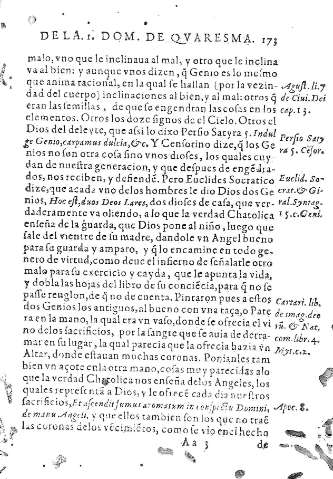 DE LA .1. DOM. DE QVARESMA. 173
malo, vno que le inclinaua al mal, y otro que le inclina
va al bien: y aunque vnos dizen, q̃ Genio es lo mesmo
que anima racional, en la qual se hallan (por la vezin-
dad del cuerpo) inclinaciones al bien, y al mal: otros q̃
eran las semillas, de que se engendran las cosas en los
elementos. Otros los doze signos de el Cielo. Otros el
Dios del deleyte, que assi lo dixo Persio Satyra 5. Indul
ge Genio, carpamus dulcia, &c. Y Censorino dize, q̃ los Ge
nios no son otra cosa sino vnos dioses, los quales cuy-
dan de nuestra generacion, y que despues de engẽdra-
dos, nos reciben, y defiendẽ. Pero Euclides Socratico
dize, que acada vno delos hombres le dio Dios dos Ge
nios, Hoc est, duos Deos Lares, dos dioses de casa, que ver-
daderamente va oliendo, a lo que la verdad Chatolica
enseña de la guarda, que Dios pone al niño, luego que
sale del vientre de su madre, dandole vn Angel bueno
para su guarda y amparo, y q̃ lo encamine en todo ge-
nero de virtud, como deue el infierno de señalarle otro
malo para su exercicio y cayda, que le apunta la vida,
y dobla las hojas del libro de su conciẽcia, para q̃ no se
passe renglon, de q̃ no de cuenta. Pintaron pues a estos
dos Genios los antiguos, al bueno con vna taça, o Pate
ra en la mano, la qual era vn vaso, donde se ofrecia el vi
no delos sacrificios, por la sangre que se auia de derra-
mar en su lugar, la qual parecia que la ofrecia hazia vn
Altar, donde estauan muchas coronas. Ponianles tam
bien vn açote en la otra mano, cosas muy parecidas alo
que la verdad Chatolica nos enseña delos Angeles, los
quales representã a Dios, y le ofrecẽ cada dia nuestros
sacrificios, Et ascendit fumus aromatum in conspectu Domini,
de manu Angeli, y que ellos tambien son los que no traẽ
las coronas delos vẽcimiẽtos, como se vio en el hecho
Aa 3 de
Agust. li. 7
de Ciui. Dei
cap. 13.
Persio Saty
ra 5. Cẽsor.
Euclid. So-
crat. & Gi-
ral. Syntag.
15. &
Cartari. lib.
de imag. deo
Nat.
com. lib. 4.
Apoc. 8.